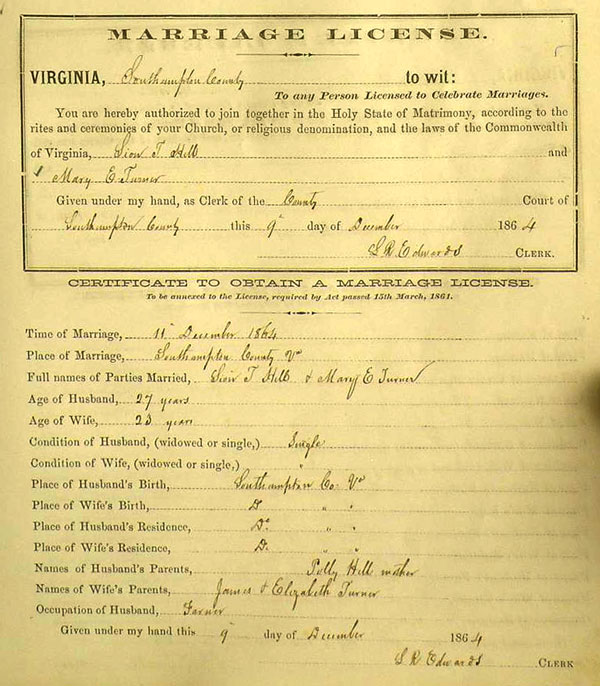 MARRIAGE LICENSE.
VIRGINIA, Southampton County to wit:
To any Person Licensed to Celebrate Marriages.
You are hereby authorized to join together in the Holy State of Matrimony, according to the
rites and ceremonies of your Church, or religious denomination, and the laws of the Commonwealth
of Virginia, Sion T Hill and
Mary E Turner
Given under my hand, as Clerk of the County Court of
Southampton County this 9 day of December 1864
S R Edwards CLERK.
CERTIFICATE TO OBTAIN A MARRIAGE LICENSE.
To be annexed to the License, required by Act passed 15th March, 1861.
Time of Marriage, 11 December 1864
Place of Marriage, Southampton County Va
Full names of Parties Married, Sion T Hill & Mary E Turner
Age of Husband, 27 years
Age of Wife, 23 years
Condition of Husband, (widowed or single,) Single
Condition of Wife, (widowed or single,) "
Place of Husband's Birth, Southampton Co. Va
Place of Wife's Birth, Do " "
Place of Husband's Residence, Do " "
Place of Wife's Residence, Do " "
Names of Husband's Parents, Polly Hill mother
Names of Wife's Parents, James & Elizabeth Turner
Occupation of Husband, Farmer
Given under my hand this 9 day of December 1864
S R Edwards CLERK